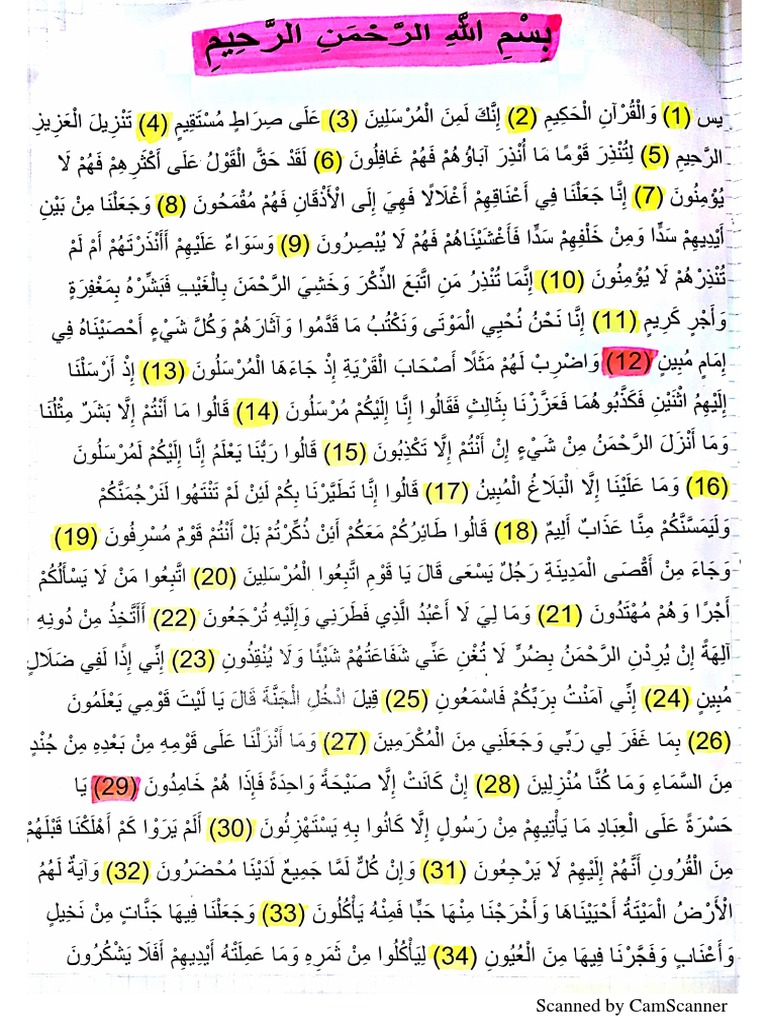 بِسْمِ اللَّهِ الرَّحْمَنِ الرَّحِيمِ
يس (1) وَالْقُرْآنِ الْحَكِيمِ (2) إِنَّكَ لَمِنَ الْمُرْسَلِينَ (3) عَلَى صِرَاطٍ مُسْتَقِيمٍ (4) تَنْزِيلَ الْعَزِيزِ
الرَّحِيمِ (5) لِتُنْذِرَ قَوْمًا مَا أُنْذِرَ آبَاؤُهُمْ فَهُمْ غَافِلُونَ (6) لَقَدْ حَقَّ الْقَوْلُ عَلَى أَكْثَرِهِمْ فَهُمْ لَا
يُؤْمِنُونَ (7) إِنَّا جَعَلْنَا فِي أَعْنَاقِهِمْ أَغْلَالًا فَهِيَ إِلَى الْأَذْقَانِ فَهُمْ مُقْمَحُونَ (8) وَجَعَلْنَا مِنْ بَيْنِ
أَيْدِيهِمْ سَدًّا وَمِنْ خَلْفِهِمْ سَدًّا فَأَغْشَيْنَاهُمْ فَهُمْ لَا يُبْصِرُونَ (9) وَسَوَاءٌ عَلَيْهِمْ أَأَنْذَرْتَهُمْ أَمْ لَمْ
تُنْذِرْهُمْ لَا يُؤْمِنُونَ (10) إِنَّمَا تُنْذِرُ مَنِ اتَّبَعَ الذِّكْرَ وَخَشِيَ الرَّحْمَنَ بِالْغَيْبِ فَبَشِّرْهُ بِمَغْفِرَةٍ
وَأَجْرٍ كَرِيمٍ (11) إِنَّا نَحْنُ نُحْيِي الْمَوْتَى وَنَكْتُبُ مَا قَدَّمُوا وَآثَارَهُمْ وَكُلَّ شَيْءٍ أَحْصَيْنَاهُ فِي
إِمَامٍ مُبِينٍ (12) وَاضْرِبْ لَهُمْ مَثَلًا أَصْحَابَ الْقَرْيَةِ إِذْ جَاءَهَا الْمُرْسَلُونَ (13) إِذْ أَرْسَلْنَا
إِلَيْهِمُ اثْنَيْنِ فَكَذَّبُوهُمَا فَعَزَّزْنَا بِثَالِثٍ فَقَالُوا إِنَّا إِلَيْكُمْ مُرْسَلُونَ (14) قَالُوا مَا أَنْتُمْ إِلَّا بَشَرٌ مِثْلُنَا
وَمَا أَنْزَلَ الرَّحْمَنُ مِنْ شَيْءٍ إِنْ أَنْتُمْ إِلَّا تَكْذِبُونَ (15) قَالُوا رَبُّنَا يَعْلَمُ إِنَّا إِلَيْكُمْ لَمُرْسَلُونَ
(16) وَمَا عَلَيْنَا إِلَّا الْبَلَاغُ الْمُبِينُ (17) قَالُوا إِنَّا تَطَيَّرْنَا بِكُمْ لَئِنْ لَمْ تَنْتَهُوا لَنَرْجُمَنَّكُمْ
وَلَيَمَسَّنَّكُمْ مِنَّا عَذَابٌ أَلِيمٌ (18) قَالُوا طَائِرُكُمْ مَعَكُمْ أَئِنْ ذُكِّرْتُمْ بَلْ أَنْتُمْ قَوْمٌ مُسْرِفُونَ (19)
وَجَاءَ مِنْ أَقْصَى الْمَدِينَةِ رَجُلٌ يَسْعَى قَالَ يَا قَوْمِ اتَّبِعُوا الْمُرْسَلِينَ (20) اتَّبِعُوا مَنْ لَا يَسْأَلُكُمْ
أَجْرًا وَهُمْ مُهْتَدُونَ (21) وَمَا لِيَ لَا أَعْبُدُ الَّذِي فَطَرَنِي وَإِلَيْهِ تُرْجَعُونَ (22) أَأَتَّخِذُ مِنْ دُونِهِ
آلِهَةً إِنْ يُرِدْنِ الرَّحْمَنُ بِضُرٍّ لَا تُغْنِ عَنِّي شَفَاعَتُهُمْ شَيْئًا وَلَا يُنْقِذُونِ (23) إِنِّي إِذًا لَفِي ضَلَالٍ
مُبِينٍ (24) إِنِّي آمَنْتُ بِرَبِّكُمْ فَاسْمَعُونِ (25) قِيلَ ادْخُلِ الْجَنَّةَ قَالَ يَا لَيْتَ قَوْمِي يَعْلَمُونَ
(26) بِمَا غَفَرَ لِي رَبِّي وَجَعَلَنِي مِنَ الْمُكْرَمِينَ (27) وَمَا أَنْزَلْنَا عَلَى قَوْمِهِ مِنْ بَعْدِهِ مِنْ جُنْدٍ
مِنَ السَّمَاءِ وَمَا كُنَّا مُنْزِلِينَ (28) إِنْ كَانَتْ إِلَّا صَيْحَةً وَاحِدَةً فَإِذَا هُمْ خَامِدُونَ (29) يَا
حَسْرَةً عَلَى الْعِبَادِ مَا يَأْتِيهِمْ مِنْ رَسُولٍ إِلَّا كَانُوا بِهِ يَسْتَهْزِئُونَ (30) أَلَمْ يَرَوْا كَمْ أَهْلَكْنَا قَبْلَهُمْ
مِنَ الْقُرُونِ أَنَّهُمْ إِلَيْهِمْ لَا يَرْجِعُونَ (31) وَإِنْ كُلٌّ لَمَّا جَمِيعٌ لَدَيْنَا مُحْضَرُونَ (32) وَآيَةٌ لَهُمُ
الْأَرْضُ الْمَيْتَةُ أَحْيَيْنَاهَا وَأَخْرَجْنَا مِنْهَا حَبًّا فَمِنْهُ يَأْكُلُونَ (33) وَجَعَلْنَا فِيهَا جَنَّاتٍ مِنْ نَخِيلٍ
وَأَعْنَابٍ وَفَجَّرْنَا فِيهَا مِنَ الْعُيُونِ (34) لِيَأْكُلُوا مِنْ ثَمَرِهِ وَمَا عَمِلَتْهُ أَيْدِيهِمْ أَفَلَا يَشْكُرُونَ
Scanned by CamScanner